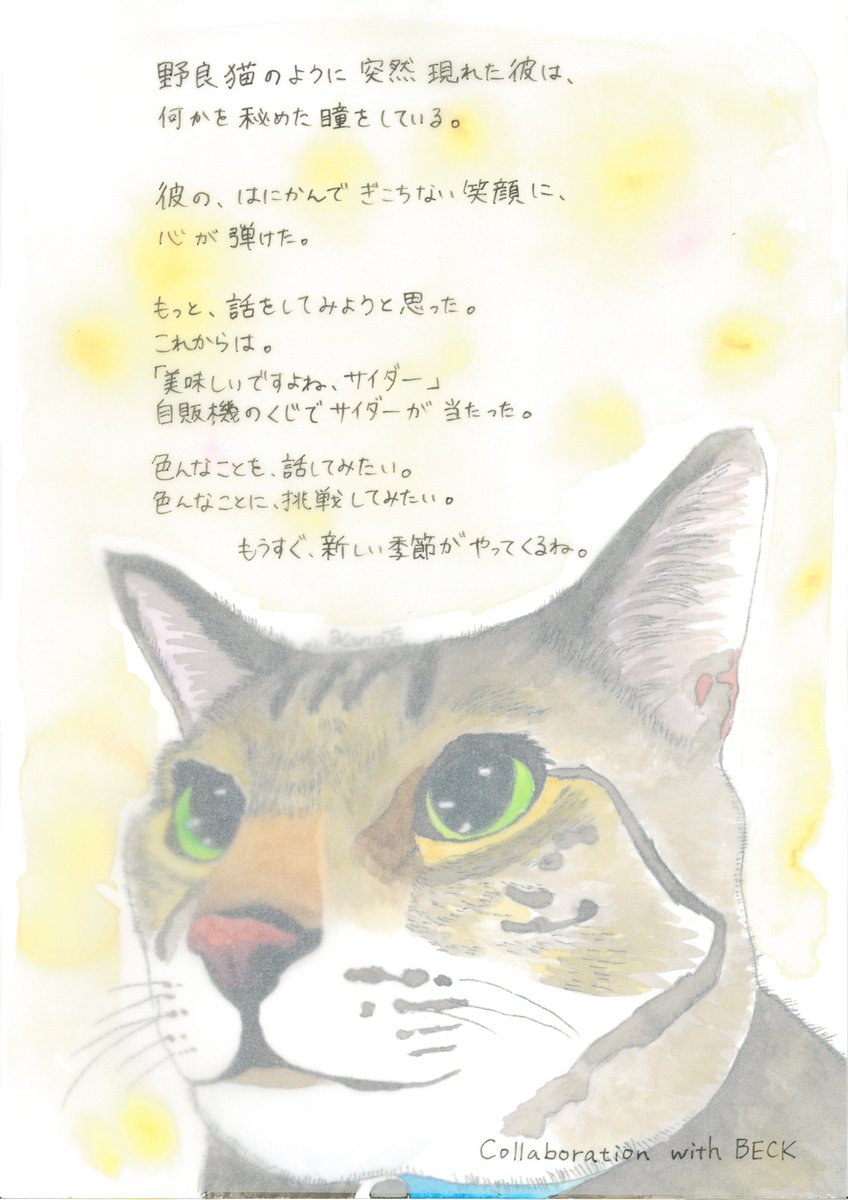 野良猫のように突然現れた彼は、
何かを秘めた瞳をしている。
彼の、はにかんでぎこちない笑顔に、
心が弾けた。
もっと、話をしてみようと思った。
これからは。
「美味しいですよね、サイダー」
自販機のくじでサイダーが当たった。
色んなことを、話してみたい。
色んなことに、挑戦してみたい。
もうすぐ、新しい季節がやってくるね。
Collaboration with BECK